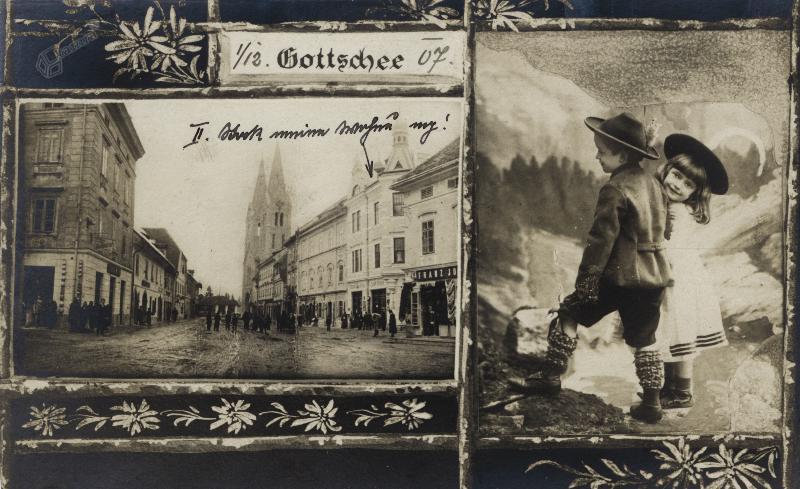 1/12. Gottschee 07.
II. Stock meine Wohnung!
FRANZ JO